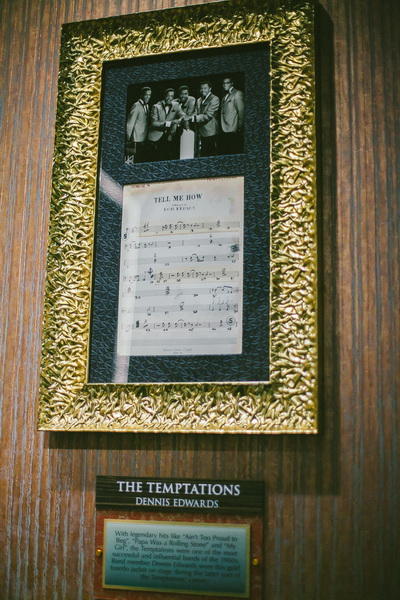 TELL ME HOW
THE TEMPTATIONS
DENNIS EDWARDS
With legendary hits like "Ain't Too Proud to
Beg", "Papa Was a Rolling Stone" and "My
Girl", the Temptations were one of the most
successful and influential bands of the 1960s.
Band member Dennis Edwards wore this gold
jacket on stage during the latter part of